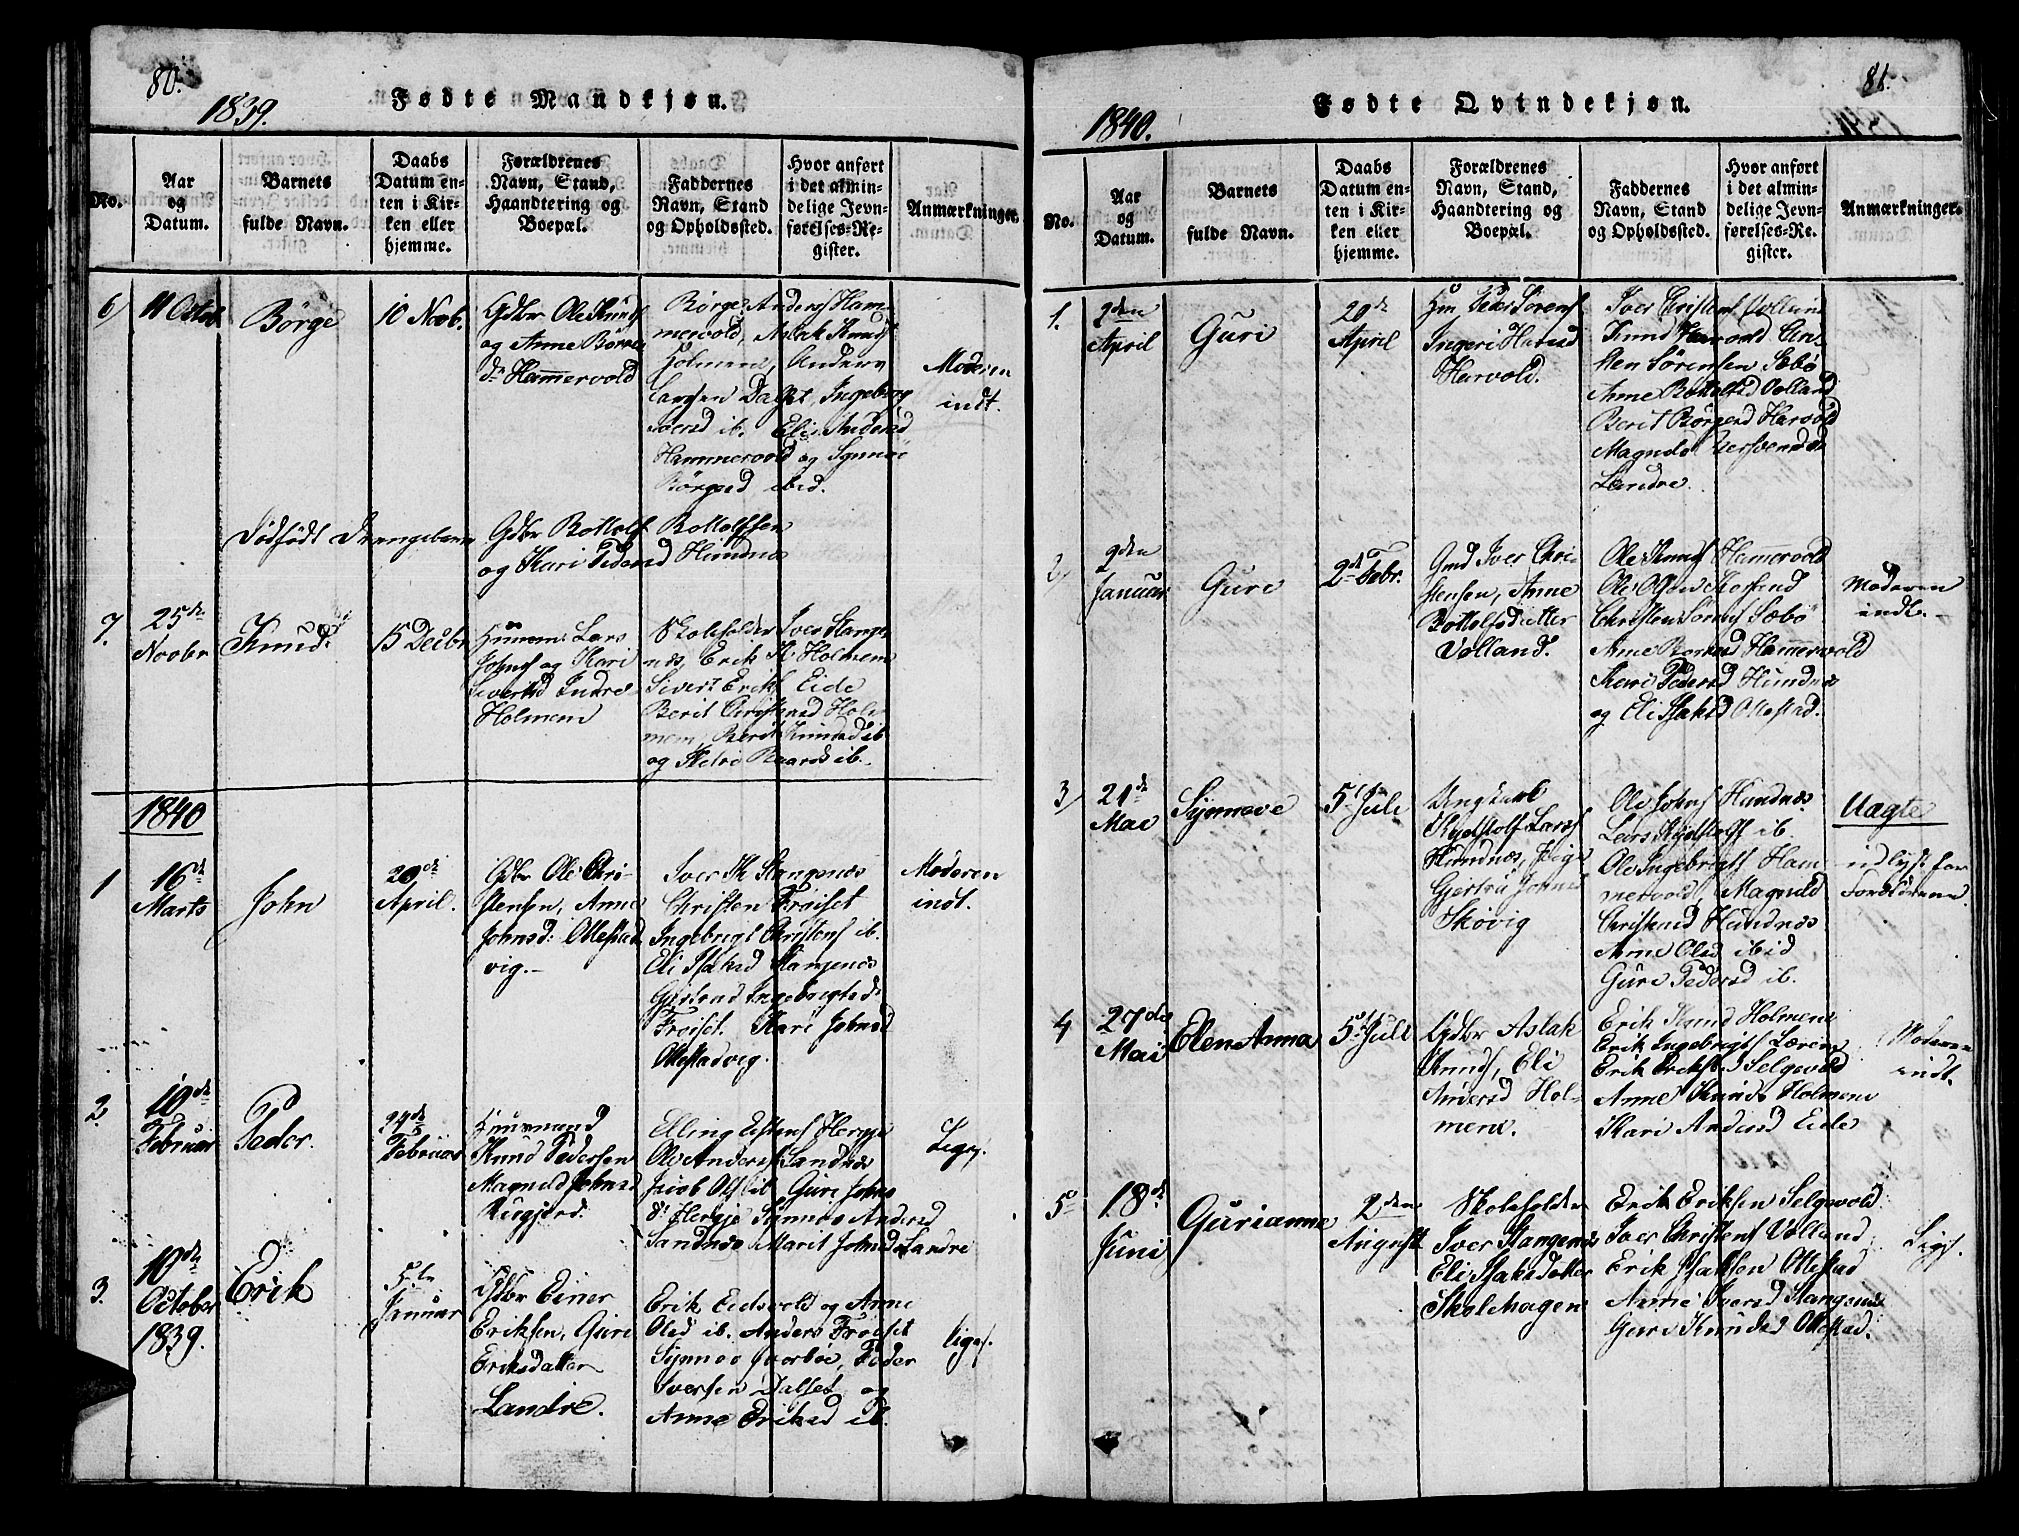 80.
1839.
Fødte Mandkjøn.
No.
Aar
og
Datum.
Barnets
fulde Navn.
Daabs
Datum en-
ten i Kir-
ken eller
hjemme.
Forældrenes
Navn, Stand,
Haandtering og
Boepæl.
Faddernes
Navn, Stand
og Opholdssted.
Hvor anført
i det almin-
delige Jevn-
førelses-Re-
gister.
Anmærkninger.
6)
11 Octob
Börge
10 Novb.
Gdbr Ole Knuds
og Anne Börges
dr Hammervold
Börge Anders Ham-
mervold, Aslak Knuds
Holmem, Anders
Larsen Dalset, Ingeborg
Iversd ib. Eli Andersd
Hammervold og Synnöe
Börgesd ibid.
Moderen
indt.
Dödfödt Drengebarn
Gdbr Bottolf Bottolfsen
og Kari Pedersd Hundnes
7.
25de
Novbr
Knud.
15 Decbr
Huusm: Lars
Johns og Kari
Sivertsd Indre
Holmem
Skoleholder Iver Stange
næs, Erik K. Holmem
Sivert Eriks Eide
Berit Christensd Hol-
mem, Berit Knudsd ib
og
ib.
1840
1
16de
Marts
John
20de
April.
Gdbr Ole Chri-
stensen, Anne
Johnsd: Ottestad
vig.
Iver K. Stangenæs
Christen Fröiset
Ingebrigt Christens ib.
Eli Isaksd Stangenæs
Gjertrud Ingebrigtsd:
Fröiset. Kari Johnsd
Ottestadvig.
Moderen
indt.
2
10de
Februar
Peder.
24de
Februar
Huusmand
Knud Pedersen
Magnild Johnsd
Elling
Ole Anders Sandnæs
Jacob Ols ib Guri Johns
dr Herje Synnöe Andersd
Sandnæs Marit Johnsd Landre
Ligs.
3.
10de
October
1839.
Erik
5te
Januar
Gdbr Einer
Eriksen, Guri
Eriksdatter
Landre.
Erik Eidsvold og Anne
Olsd ib. Anders Fröiset
Synnöe
Peder
Iversen Dalset og
Anne Eriksd ib.
ligs.
81.
1840.
Fødte Qvindekjøn.
No.
Aar
og
Datum.
Barnets
fulde Navn.
Daabs
Datum en-
ten i Kir-
ken eller
hjemme.
Forældrenes
Navn, Stand,
Haandtering og
Boepæl.
Faddernes
Navn, Stand
og Opholdssted.
Hvor anført
i det almin-
delige Jevn-
førelses-Re-
gister.
Anmærkninger.
1.
2den
April
Guri
20de
April
Hm Peder Sörens
Ingeri
Harvold.
Iver Christens Volland
Knud Harvold
sten Sörensen Sæbö
Anne Bottolfsd Volland
Berit Börgesd Harvold
Magnild
Landre
2)
9den
Januar
Guri
2de Febr.
Gmd Iver Chri-
stensen, Anne
Bottolfsdatter
Volland.
Ole Knuds Hammervold
Ole Olsen
Christen Sörens Sæbö
Anne Börgesd Hammervold
Kari Pedersd Hundnæs
og Eli Isaksd Ottestad.
Moderen
indt.
3)
21de
Mai
Synneve
5te Juli
Ungkarl
Kjelstolf Lars
Hundnæs, Pige
Gjertru Johns
Skövig
Ole Johns Hundnæs
Lars Kjelstolfs ib.
Ole Ingebrigts Ham-
mervold, Magnild
Christensd Hundnæs
Anne Olsd ibid
Guri Pedersd ib.
Uægte
udlyst for
Forældrene
4
27de
Mai
Elen Anna
5te Juli
Gdbr Aslak
Knuds, Eli
Andersd Hol-
mem.
Erik Knuds Holmem
Erik Ingebrigts Lærem
Erik Eriks Selgevold
Anne Knuds Holmem
Kari Andersd Eide
Moderen
indt.
5
18de
Juni
Gurianna
2den
August
Skoleholder
Iver Stangenæs
Eli Isaksdatter
Skolehagen
Erik Eriksen Selgevold
Iver Christens Volland
Erik Isaksen Ottestad
Anne Iversd Stangenæs
Guri Knudsd Ottestad.
Ligs.